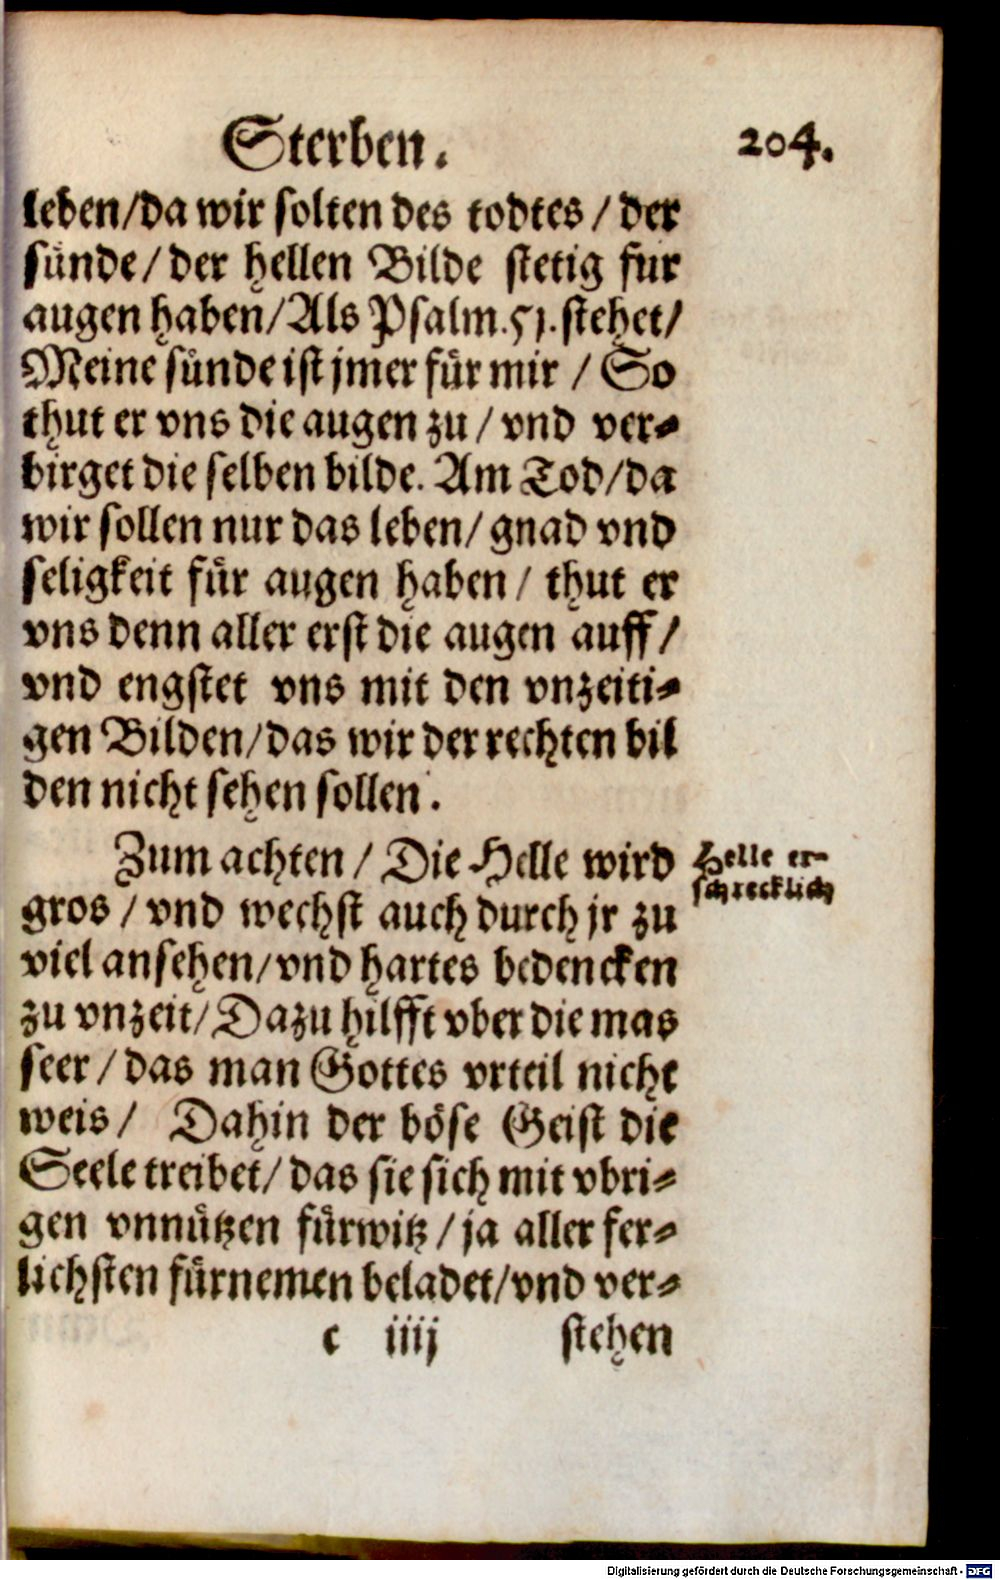 Sterben. 204.
leben/da wir solten des todtes / der
sünde / der hellen Bilde stetig fur
augen haben/Als Psalm.51.stehet/
Meine sünde ist jmer für mir / So
thut er vns die augen zu / vnd ver-
birget die selben bilde. Am Tod/da
wir sollen nur das leben/ gnad vnd
seligkeit für augen haben / thut er
vns denn aller erst die augen auff /
vnd engstet vns mit den vnzeiti-
gen Bilden/das wir der rechten bil
den nicht sehen sollen.
Zum achten / Die Helle wird
Helle er-
schrecklich
gros / vnd wechst auch durch jr zu
viel ansehen/vnd hartes bedencken
zu vnzeit/ Dazu hilfft vber die mas
seer / das man Gottes vrteil nicht
weis / Dahin der böse Geist die
Seele treibet/ das sie sich mit vbri-
gen vnnützen fürwitz / ja aller fer-
lichsten fürnemen beladet/vnd ver-
c iiij stehen
Digitalisierung gefördert durch die Deutsche Forschungsgemeinschaft - DFG